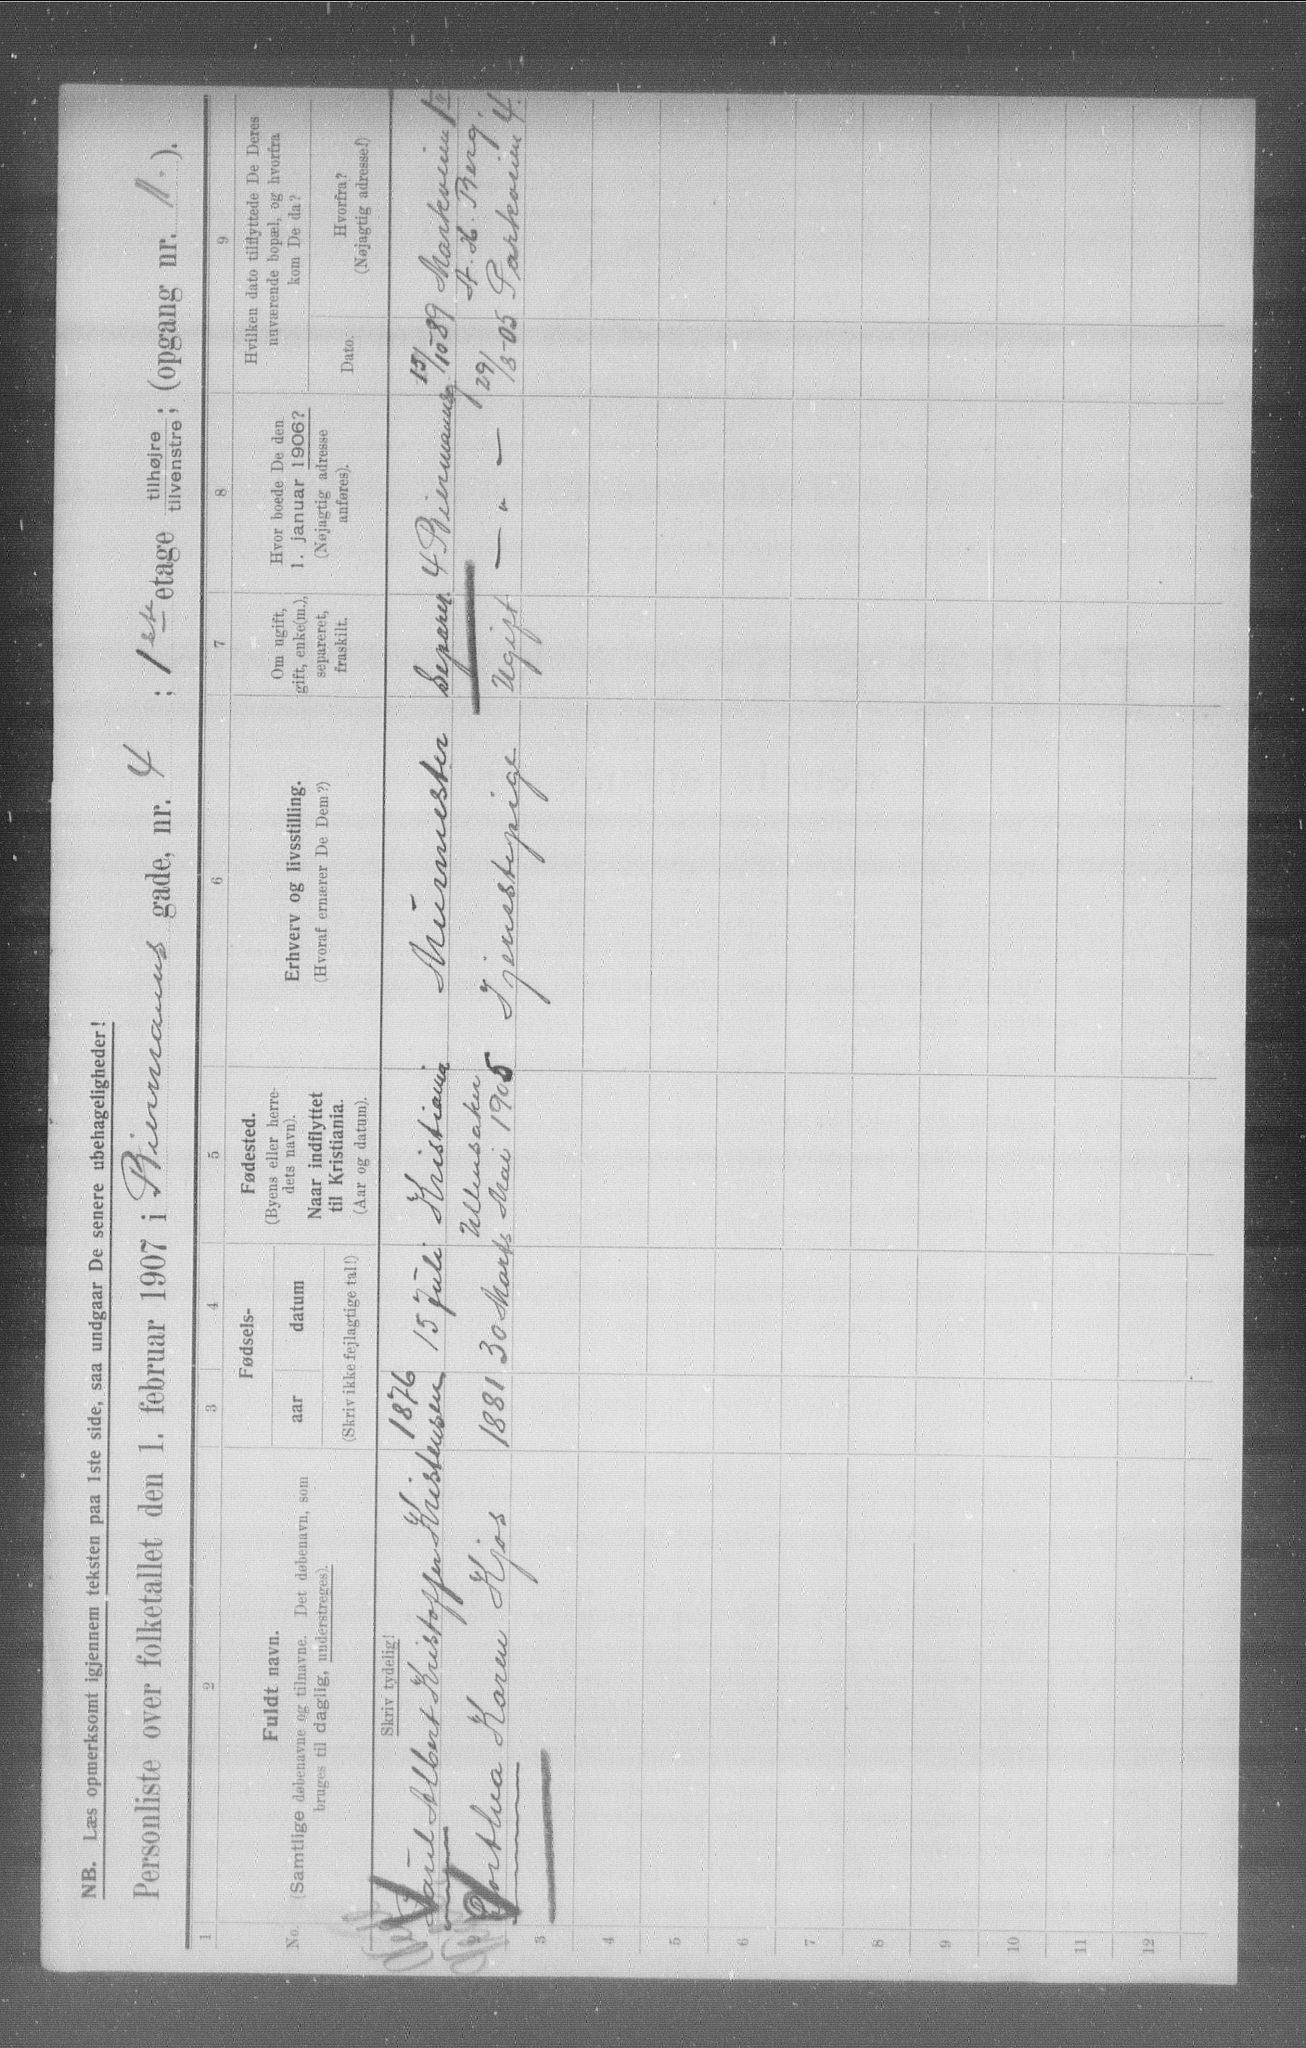 NB. Læs opmerksomt igjennem teksten paa 1ste side, saa undgaar De senere ubehageligheder!
Personliste over folketallet den 1. februar 1907 i Biermanns gade, nr. 4 ; 1ste etage tilhøjre tilvenstre; (opgang nr. 11.).
1 2 3 4 5 6 7 8 9
No.
Fuldt navn.
(Samtlige døbenavne og tilnavne. Det døbenavn, som
bruges til daglig, understreges).
Fødsels-
aar datum
(Skriv ikke fejlagtige tal!)
Fødested.
(Byens eller herre-
dets navn).
Naar indflyttet
til Kristiania.
(Aar og datum).
Erhverv og livsstilling.
(Hvoraf ernærer De Dem?)
Om ugift,
gift, enke(m.),
separeret,
fraskilt.
Hvor boede De den
1. januar 1906?
(Nøjagtig adresse
anføres).
Hvilken dato tilflyttede De Deres
nuværende bopæl, og hvorfra
kom De da?
Dato.
Hvorfra?
(Nøjagtig adresse!)
Skriv tydelig!
Paul Albert Kristoffer Kristensen 1876 15 Juli Kristiania Murmester Separet. 4 Biermannsg. 15/10 89 Markveien
Ullensaker A. H. Berg.
2 Dorthea Karen Kjos 1881 30 Marts Mai 1905 Tjenestepige Ugift — " — 29/3-05 Parkveien 4.
3
4
5
6
7
8
9
10
11
12